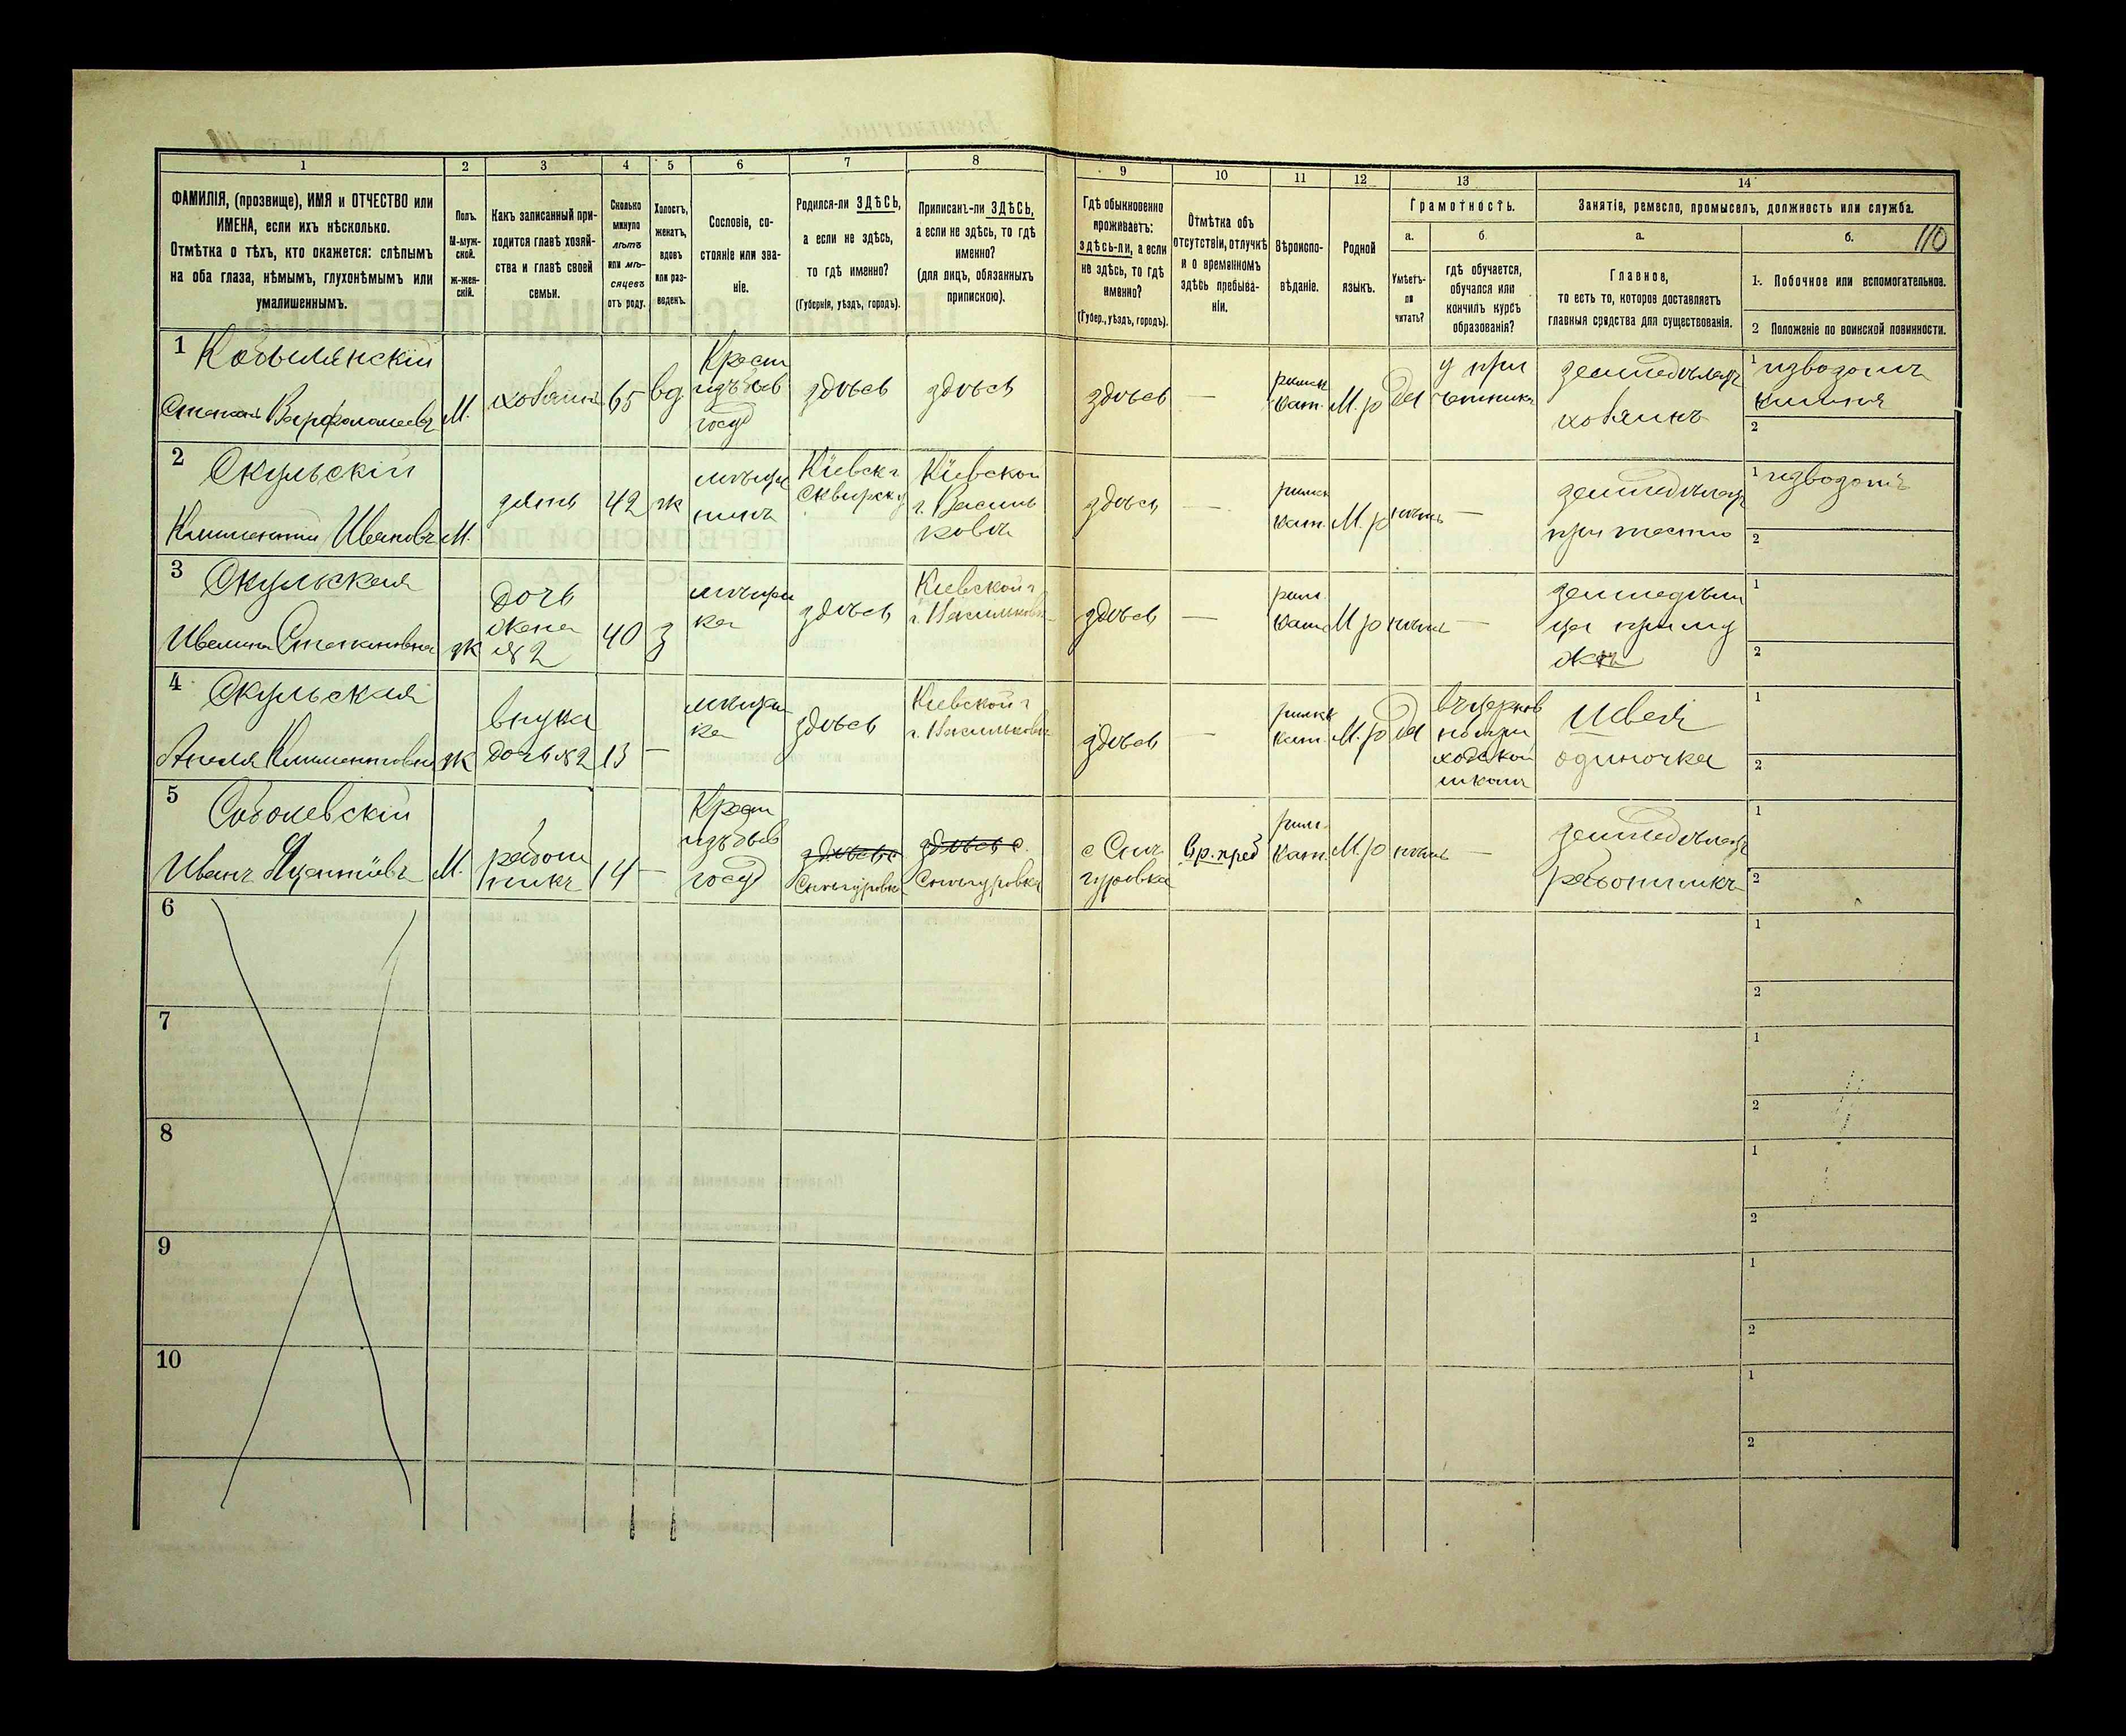 1
2
3
4
5
6
7
8
9
10
11
12
13
14
ФАМИЛІЯ, (прозвище), ИМЯ и ОТЧЕСТВО или
ИМЕНА, если ихъ нѣсколько.
Отмѣтка о тѣхъ, кто окажется: слѣпымъ
на оба глаза, нѣмымъ, глухонѣмымъ или
умалишеннымъ.
Полъ.
М-муж-
ской.
ж-жен-
скій.
Какъ записанный при-
ходится главѣ хозяй-
ства и главѣ своей
семьи.
Сколько
минуло
лѣтъ
или мѣ-
сяцевъ
отъ роду.
Холостъ,
женатъ,
вдовъ
или раз-
веденъ.
Сословіе, со-
стояніе или зва-
ніе.
Родился-ли ЗДѢСЬ,
а если не здѣсь,
то гдѣ именно?
(Губернія, уѣздъ, городъ).
Приписанъ-ли ЗДѢСЬ,
а если не здѣсь, то гдѣ
именно?
(для лицъ, обязанныхъ
припискою).
Гдѣ обыкновенно
проживаетъ:
здѣсь-ли, а если
не здѣсь, то гдѣ
именно?
(Губер., уѣздъ, городъ).
Отмѣтка объ
отсутствіи, отлучкѣ
и о временномъ
здѣсь пребыва-
ніи.
Вѣроиспо-
вѣданіе.
Родной
языкъ.
Грамотность.
а.
Умѣетъ-
ли
читать?
б.
гдѣ обучается,
обучался или
кончилъ курсъ
образованія?
Занятіе, ремесло, промыселъ, должность или служба.
а.
Главное,
то есть то, которое доставляетъ
главныя средства для существованія.
б.
110
1. Побочное или вспомогательное.
2 Положеніе по воинской повинности.
1 Кобылянскій
Степанъ Варфоломеевъ
М.
хозяинъ
65
вд
Крест
изъ быв
госуд
здѣсь
здѣсь
здѣсь
—
римск
кат.
М. р
Да
у при
четника
земледѣлецъ
хозяинъ
1 извозомъ
2
2 Скульскій
Климентій Ивановъ
М.
зять
42
ж
мѣща
нинъ
Кіевск г
Сквирск у
Кіевской
г. Василь
ковъ
здѣсь
—
римск
кат.
М. р
нѣтъ
—
земледѣлецъ
при тестѣ
1 извозомъ
2
3 Скульская
Ивелина Степановна
ж
Дочь
жена
№ 2
40
з
мѣщан
ка
здѣсь
Кіевской г
г. Васильковъ
здѣсь
—
рим.
кат
М р
нѣтъ
—
земледѣли
ца при му
жѣ
1
2
4 Скульская
Анеля Климентовна
ж
внука
дочь № 2
13
—
мѣщан
ка
здѣсь
Кіевской г
г. Васильковъ
здѣсь
—
римск
кат.
М. р
Да
въ церков
но при
ходской
школѣ
Швея
одиночка
1
2
5 Соболевскій
Иванъ Яцентіевъ
М.
работ
никъ
14
—
Крест
изъ быв
госуд
здѣсь с
Снѣгуровка
здѣсь с.
Снѣгуровка
с Снѣ
гуровка
Вр. преб
рим.
кат.
М. р
нѣтъ
—
земледѣлецъ
работникъ
1
2
6
1
2
7
1
2
8
1
2
9
1
2
10
1
2